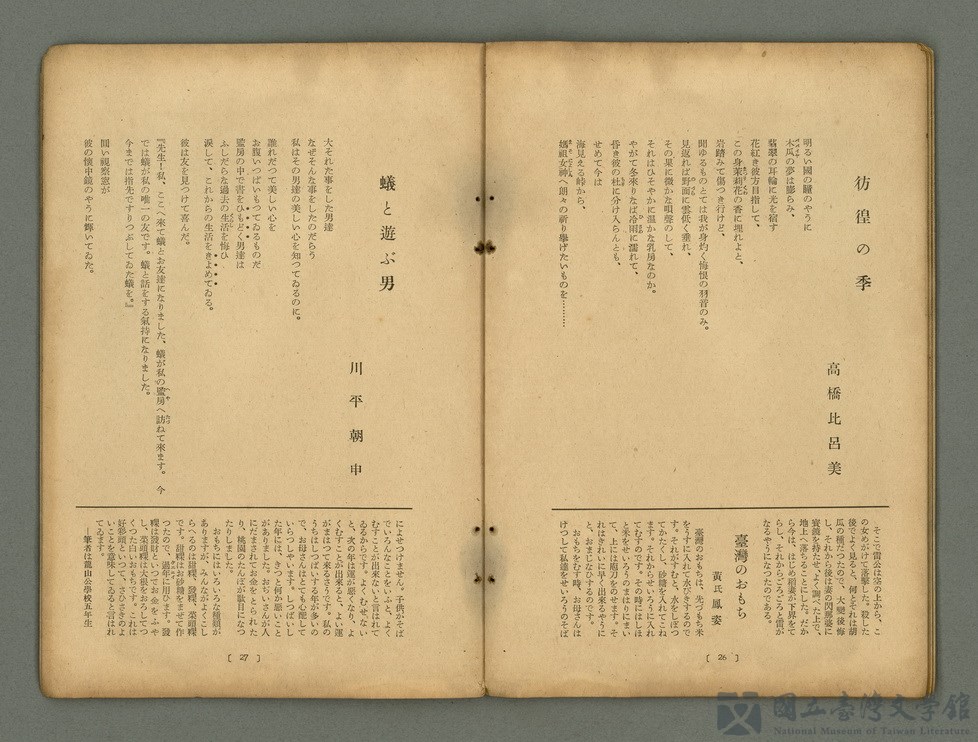 彷徨の季
高橋比呂美
明るい國の瞳のやうに
木瓜の夢は膨らみ、
翡翠の耳輪に光を宿す
花紅き彼方目指して、
この身茉莉花の香に埋れよと、
岩踏みて傷つき行けど、
聞ゆるものとては我が身灼く悔恨の羽音のみ。
見返れば野面に雲低く垂れ、
その果に微かな唄聲のして、
それはひそやかに温かな乳房なのか。
やがて冬來りなば冷雨に濡れて、
昏き彼の杜に分け入らんとも、
せめて今は
海見える峠から、
媽祖女神へ朗々の祈り擧げたいものを………
そこで雷公は空の上から、こ
の女めがけて落擊した。殺した
後でよく見ると、何とそれは胡
瓜の種だつたので、大變後悔
し、それから後は妻の閃那婆に
寶鏡を持たせ、よく調べた上で、
地上へ落ちることにした。だか
ら今は、はじめ稻妻が下界をて
らし、それからごろごろと雷が
なるやうになつたのである。
臺灣のおもち
黃氏鳳姿
臺灣のおもちは、先づもち米
をうすに入れて水びきするので
す。それがすむと、水をしぼつ
てかたくし、砂糖を入れてこね
ます。それからせいろうに入れ
てむすのです。その時にはしほ
と米をせいろうのまはりにまい
て、上には庖刀をのせます。そ
れはきれいに早く出來るやうに
と、おまじなひするのです。
おもちをむす時、お母さんは
けつして私達をせいろうのそば
[ 26 ]
蟻と遊ぶ男
川平朝申
大それた事をした男達
なぜそんな事をしたのだらう
私はその男達の美しい心を知つてゐるのに。
誰れだつて美しい心を
お腹いつぱいもつてゐるものだ
監房の中で書をひもどく男達は
ふしだらな過去の生活を悔ひ
淚して、これからの生活をきよめてゐる。
彼は友を見つけて喜んだ。
『先生!私、ここへ來て蟻とお友達になりました、蟻が私の監房へ訪ねて來ます。今
では蟻が私の唯一の友です。蟻と話をする氣持になりました。
今までは指先ですりつぶしてゐた蟻を。』
圓い視察窓が
彼の懷中鏡のやうに輝いてゐた。
によせつけません。子供がそば
でいろんなことをいふと、よく
むすことが出來ないと言はれて
ゐるからです。よくむせない
と、次の年は運が惡くなり、よ
くむすことが出來ると、よい運
がまはつて來るさうです。私の
うちはしつぱいする年が多いの
で、お母さんはとても心配して
いらつしやいます。しつぱいし
た年には、きつと何か惡いこと
がありました。おぢいさんが人
にだまされてお金を取られた
り、桃園のたんぼが駄目になつ
たりしました。
おもちにはいろいろな種類が
ありますが、みんながよくこし
らへるのは甜粿、發粿、菜頭粿
です。甜粿はお砂糖をまぜて作
つたので、過年に用ひます。發
粿は發財といつてお金をふや
し、菜頭粿は大根をおろしてつ
くつた白いおもちです。これは
好彩頭といつて、さいさきのよ
いことを意味してゐると言はれ
てゐます。
―筆者は龍山公學校五年生
[ 27 ]
國立臺灣文學館
National Museum of Taiwan Literature